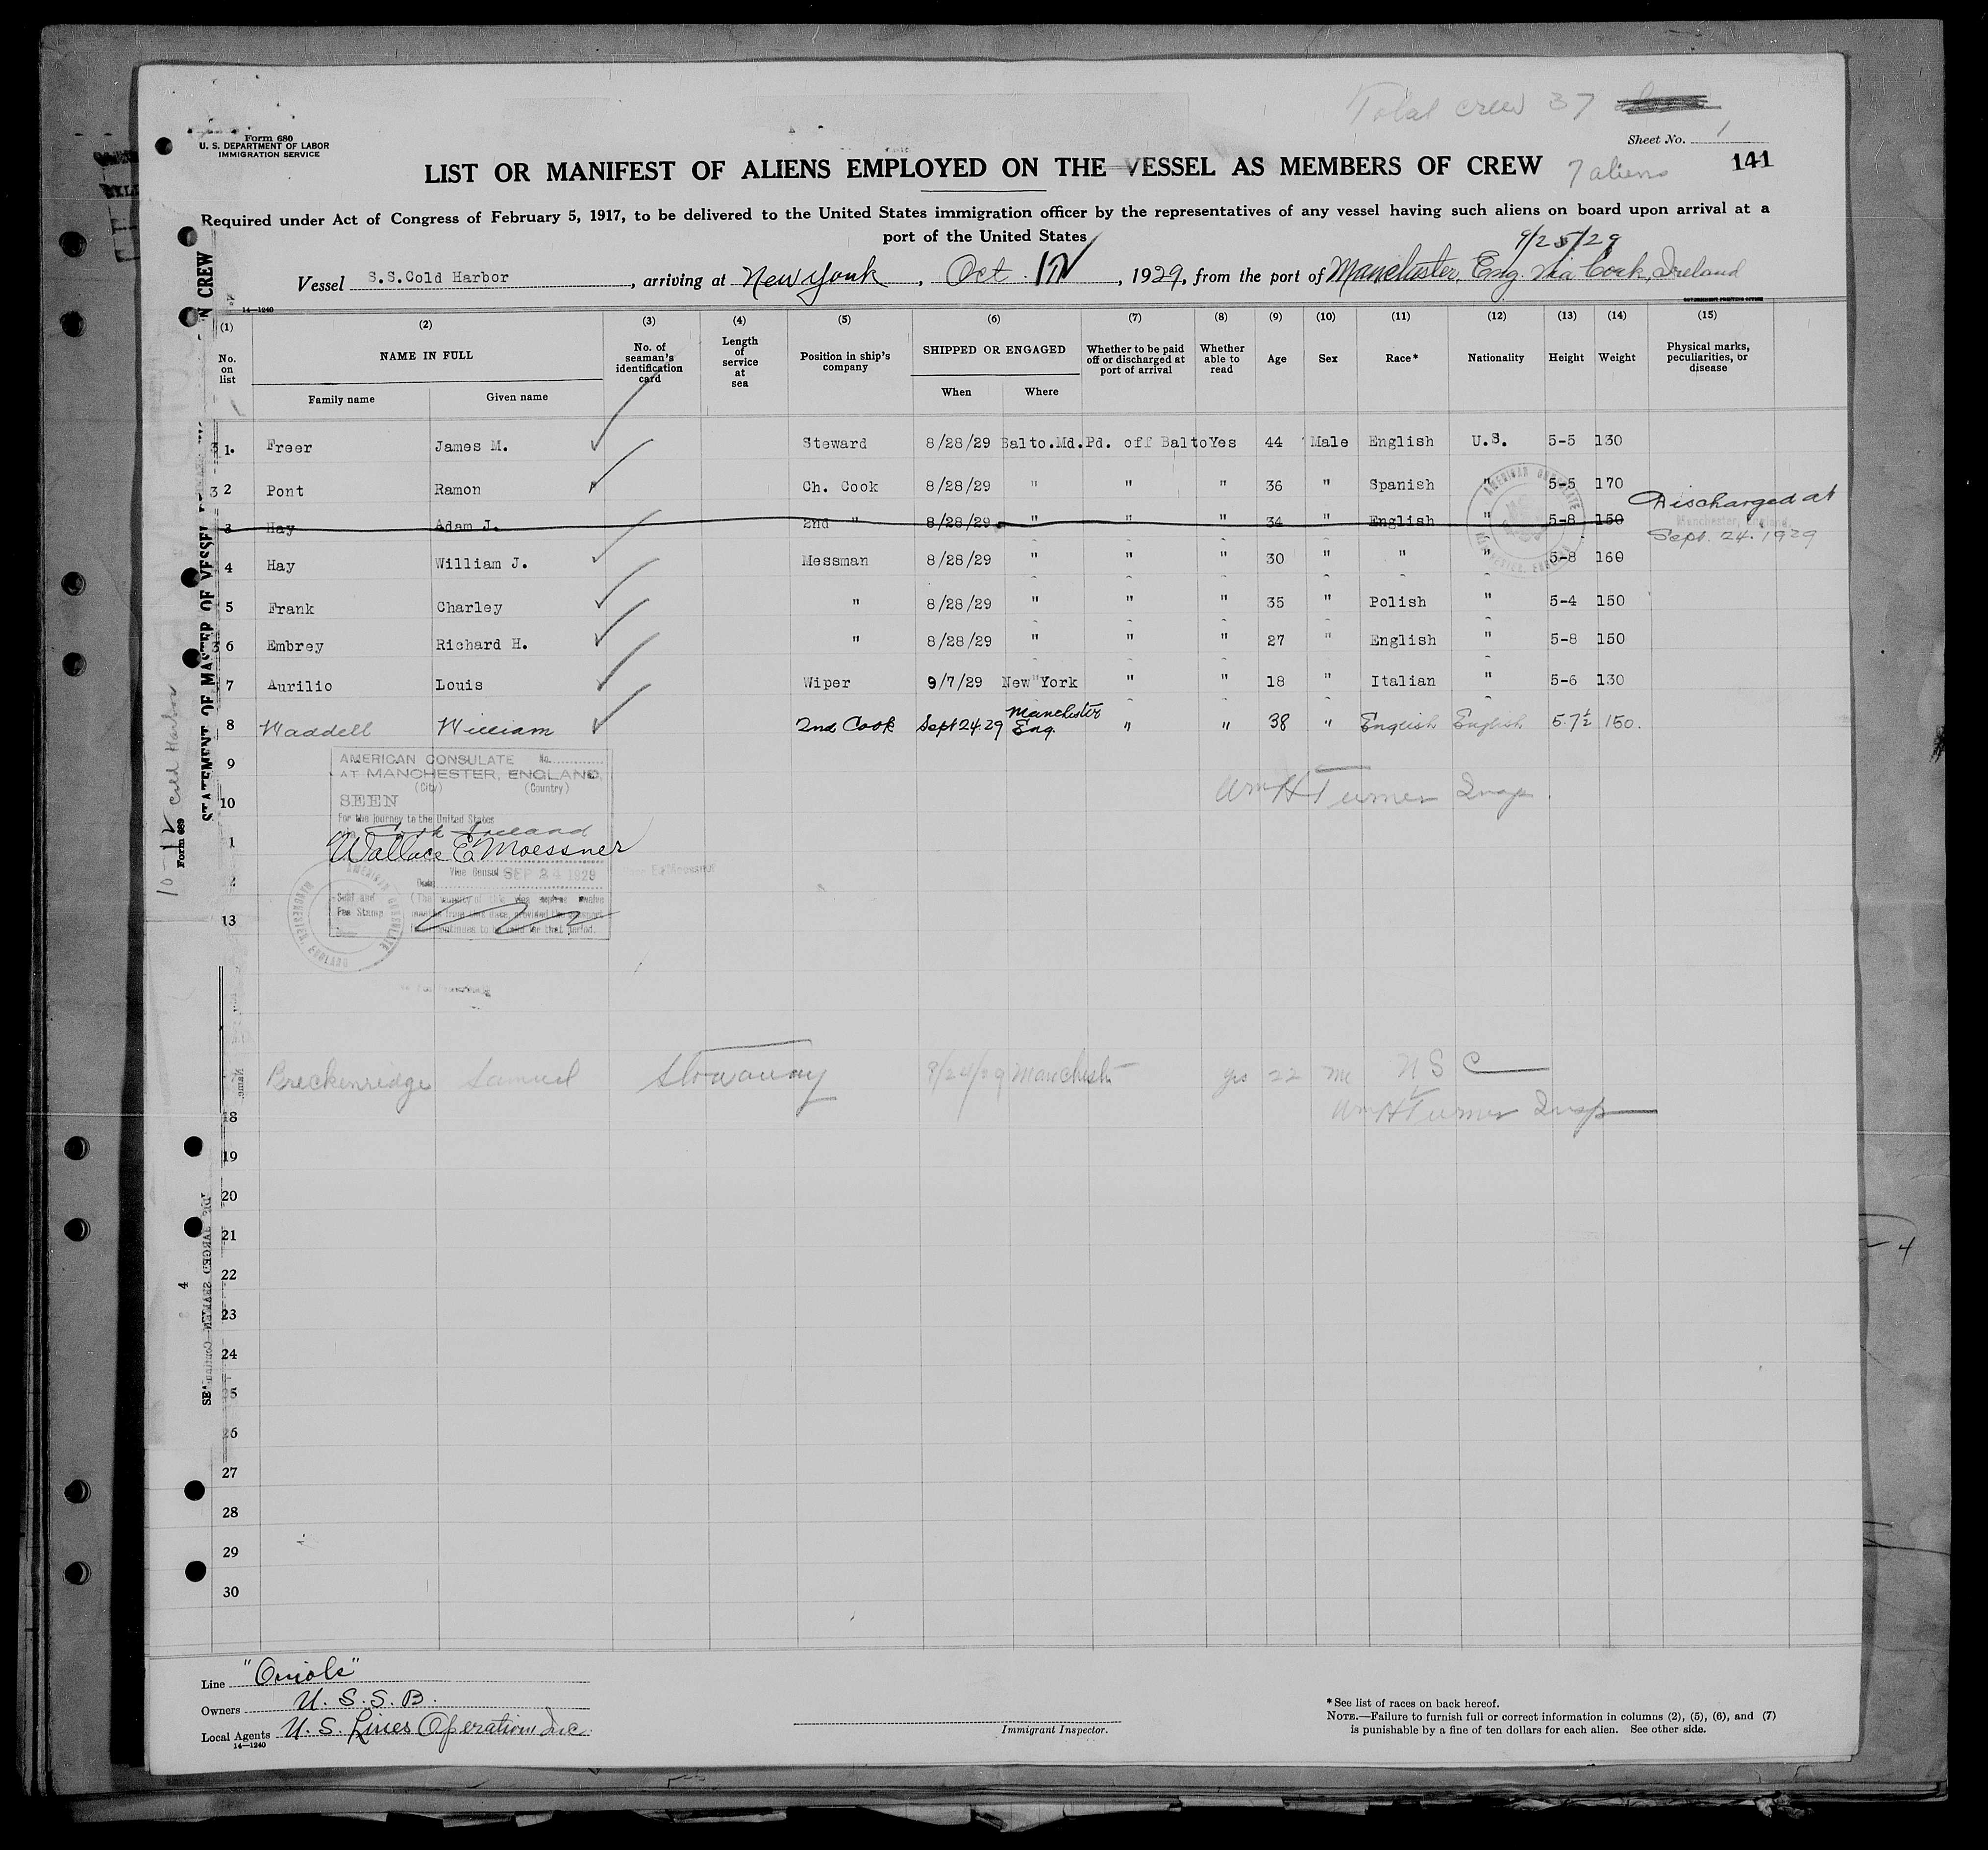 Total crew 37
Form 680
U. S. DEPARTMENT OF LABOR
IMMIGRATION SERVICE
Sheet No. 1
LIST OR MANIFEST OF ALIENS EMPLOYED ON THE VESSEL AS MEMBERS OF CREW
7 aliens
141
Required under Act of Congress of February 5, 1917, to be delivered to the United States immigration officer by the representatives of any vessel having such aliens on board upon arrival at a
port of the United States
9/25/29
Vessel S.S.Cold Harbor, arriving at New York, Oct. 12, 1929, from the port of Manchester, Eng. Via Cork, Ireland
14—1240
(1) (2) (3) (4) (5) (6) (7) (8) (9) (10) (11) (12) (13) (14) (15)
No. on list NAME IN FULL No. of seaman's identification card Length of service at sea Position in ship's company SHIPPED OR ENGAGED Whether to be paid off or discharged at port of arrival Whether able to read Age Sex Race* Nationality Height Weight Physical marks, peculiarities, or disease
Family name Given name When Where
1. Freer James M. Steward 8/28/29 Balto.Md. Pd. off Balto Yes 44 Male English U.S. 5-5 130
2 Pont Ramon Ch. Cook 8/28/29 " " " 36 " Spanish " 5-5 170
3 Hay Adam J. 2nd " 8/28/29 " " " 34 " English " 5-8 150 Discharged at
Manchester, England.
Sept. 24. 1929
4 Hay William J. Messman 8/28/29 " " " 30 " " " 5-8 160
5 Frank Charley " 8/28/29 " " " 35 " Polish " 5-4 150
6 Embrey Richard H. " 8/28/29 " " " 27 " English " 5-8 150
7 Aurilio Louis Wiper 9/7/29 New York " " 18 " Italian " 5-6 130
8 Waddell William 2nd Cook Sept 24.29 Manchester Eng. " " 38 " English English 5.7½ 150.
AMERICAN CONSULATE No.
AT MANCHESTER, ENGLAND
(City) (Country)
SEEN
For the journey to the United States
Cork Ireland
Wallace E. Moessner
Vice Consul SEP 24 1929
Seal and
Fee Stamp
AMERICAN CONSULATE
MANCHESTER, ENGLAND
9
10
Wm H Turner Insp.
1
2
13
Breckenridge Samuel Stowaway 9/24/29 Manchester yes 22 M U S C
Wm H Turner Insp
18
19
20
21
22
23
24
25
26
27
28
29
30
STATEMENT OF MASTER OF VESSEL
10-12 Cold Harbor
Form 689
4
Line "Oriole"
Owners U. S. S. B.
Local Agents U. S. Lines Operation Inc.
14—1240
Immigrant Inspector.
*See list of races on back hereof.
NOTE.—Failure to furnish full or correct information in columns (2), (5), (6), and (7)
is punishable by a fine of ten dollars for each alien. See other side.